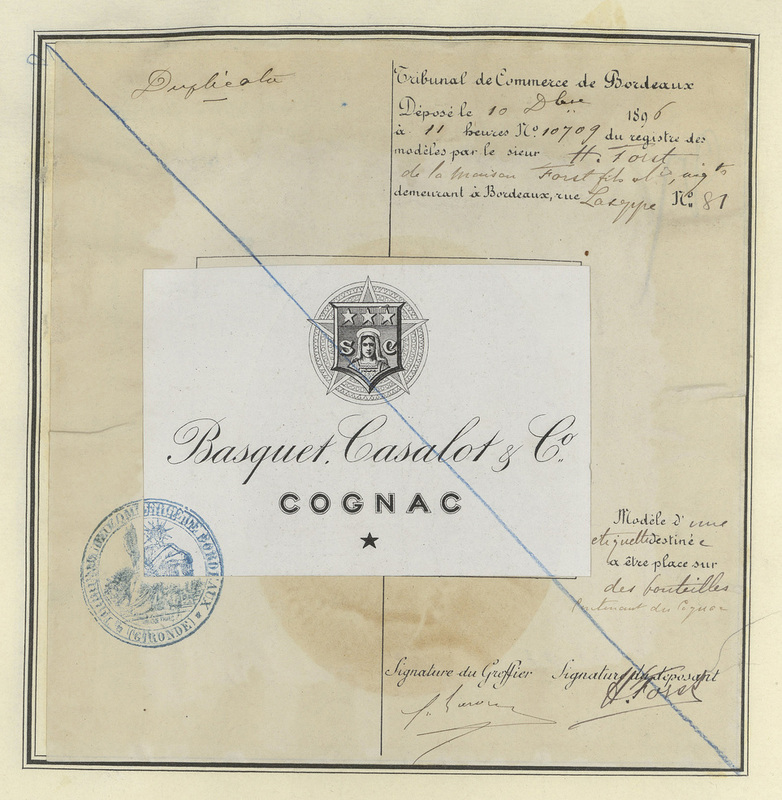 Duplicata
Tribunal de Commerce de Bordeaux
Déposé le 10 Dbre 1896
à 11 heures No. 10709 du registre des
modèles par le sieur H. Forst
de la maison Forst fils & Cie,
demeurant à Bordeaux, rue Laseppe No. 81
S C
Basquet, Casalot & Co.
COGNAC
TRIBUNAL DE COMMERCE DE BORDEAUX
(GIRONDE)
Modèle d'une
etiquette destinée
à être place sur
des bouteilles
contenant du Cognac
Signature du Greffier Signature du déposant
H. Forst